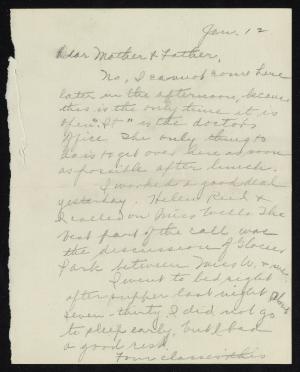 Jan. 12
Dear Mother & Father,
No, I cannot come here
later in the afternoon, because
this is the only time it is
open. "It" is the doctor's
office. The only thing to
do is to get over here as soon
as possible after lunch.
I worked a good deal
yesterday. Helen Reid &
I called on Miss Wells. The
best part of the call was
the discussion of
Park between Miss W. & me.
I went to bed right
after supper last night about
seven-thirty. I did not go
to sleep early, but I had
a good rest.
Four classes this